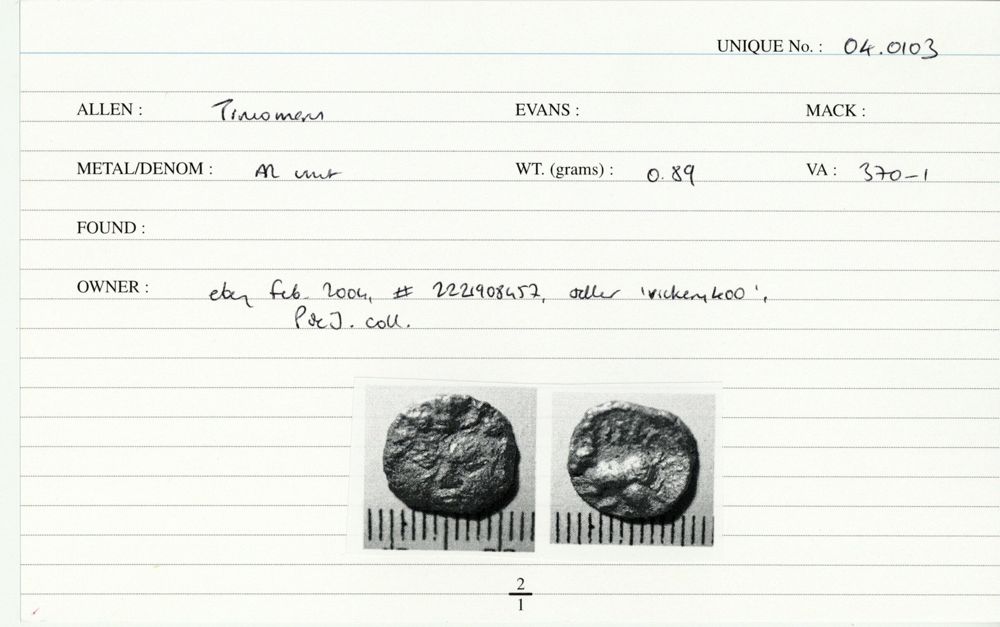 UNIQUE No. : 04.0103
ALLEN : EVANS : MACK :
METAL/DENOM : AR unit WT. (grams) : 0.89 VA : 370-1
FOUND :
OWNER : ebay Feb. 2004, # 2221908457, seller
coll.
2
1